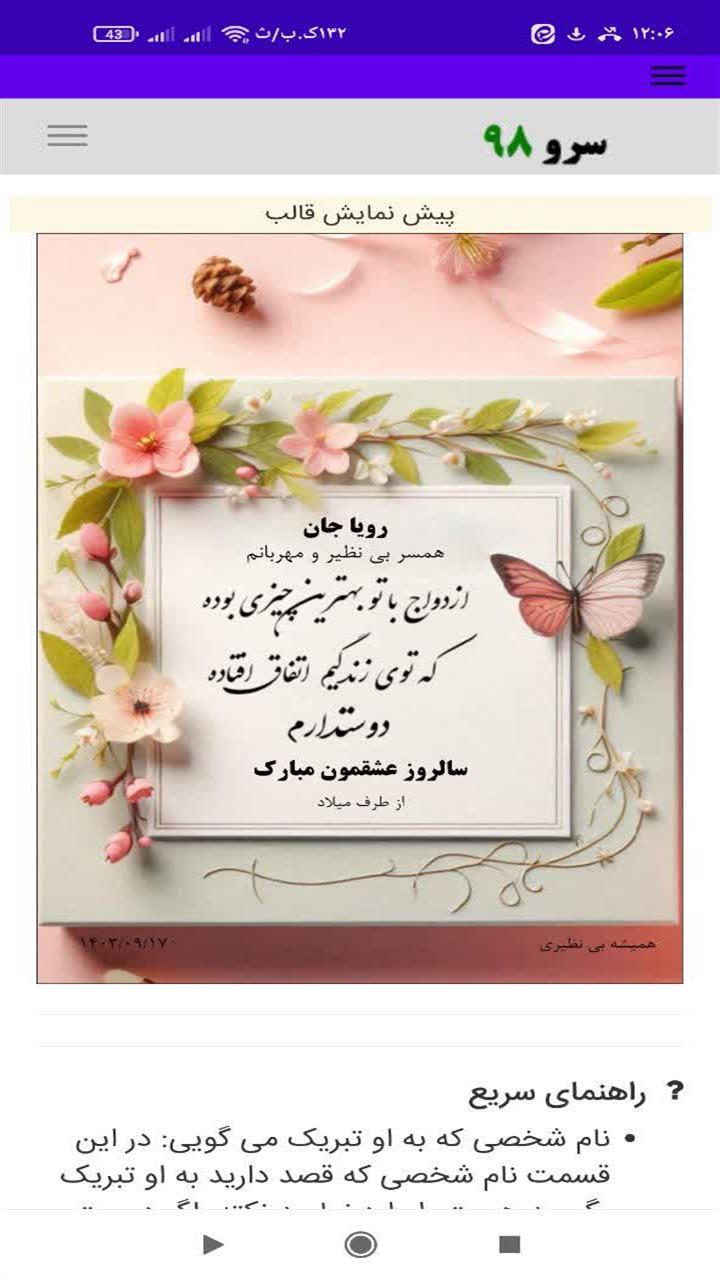 ۱۲:۰۶
۱۳۲ک.ب/ث
43
سرو ۹۸
پیش نمایش قالب
رویا جان
همسر بی نظیر و مهربانم
ازدواج با تو بهترین چیزی بوده
که توی زندگیم اتفاق افتاده
دوستدارم
سالروز عشقمون مبارک
از طرف میلاد
همیشه بی نظیری
۱۴۰۳/۰۹/۱۷
? راهنمای سریع
• نام شخصی که به او تبریک می گویی: در این
قسمت نام شخصی که قصد دارید به او تبریک